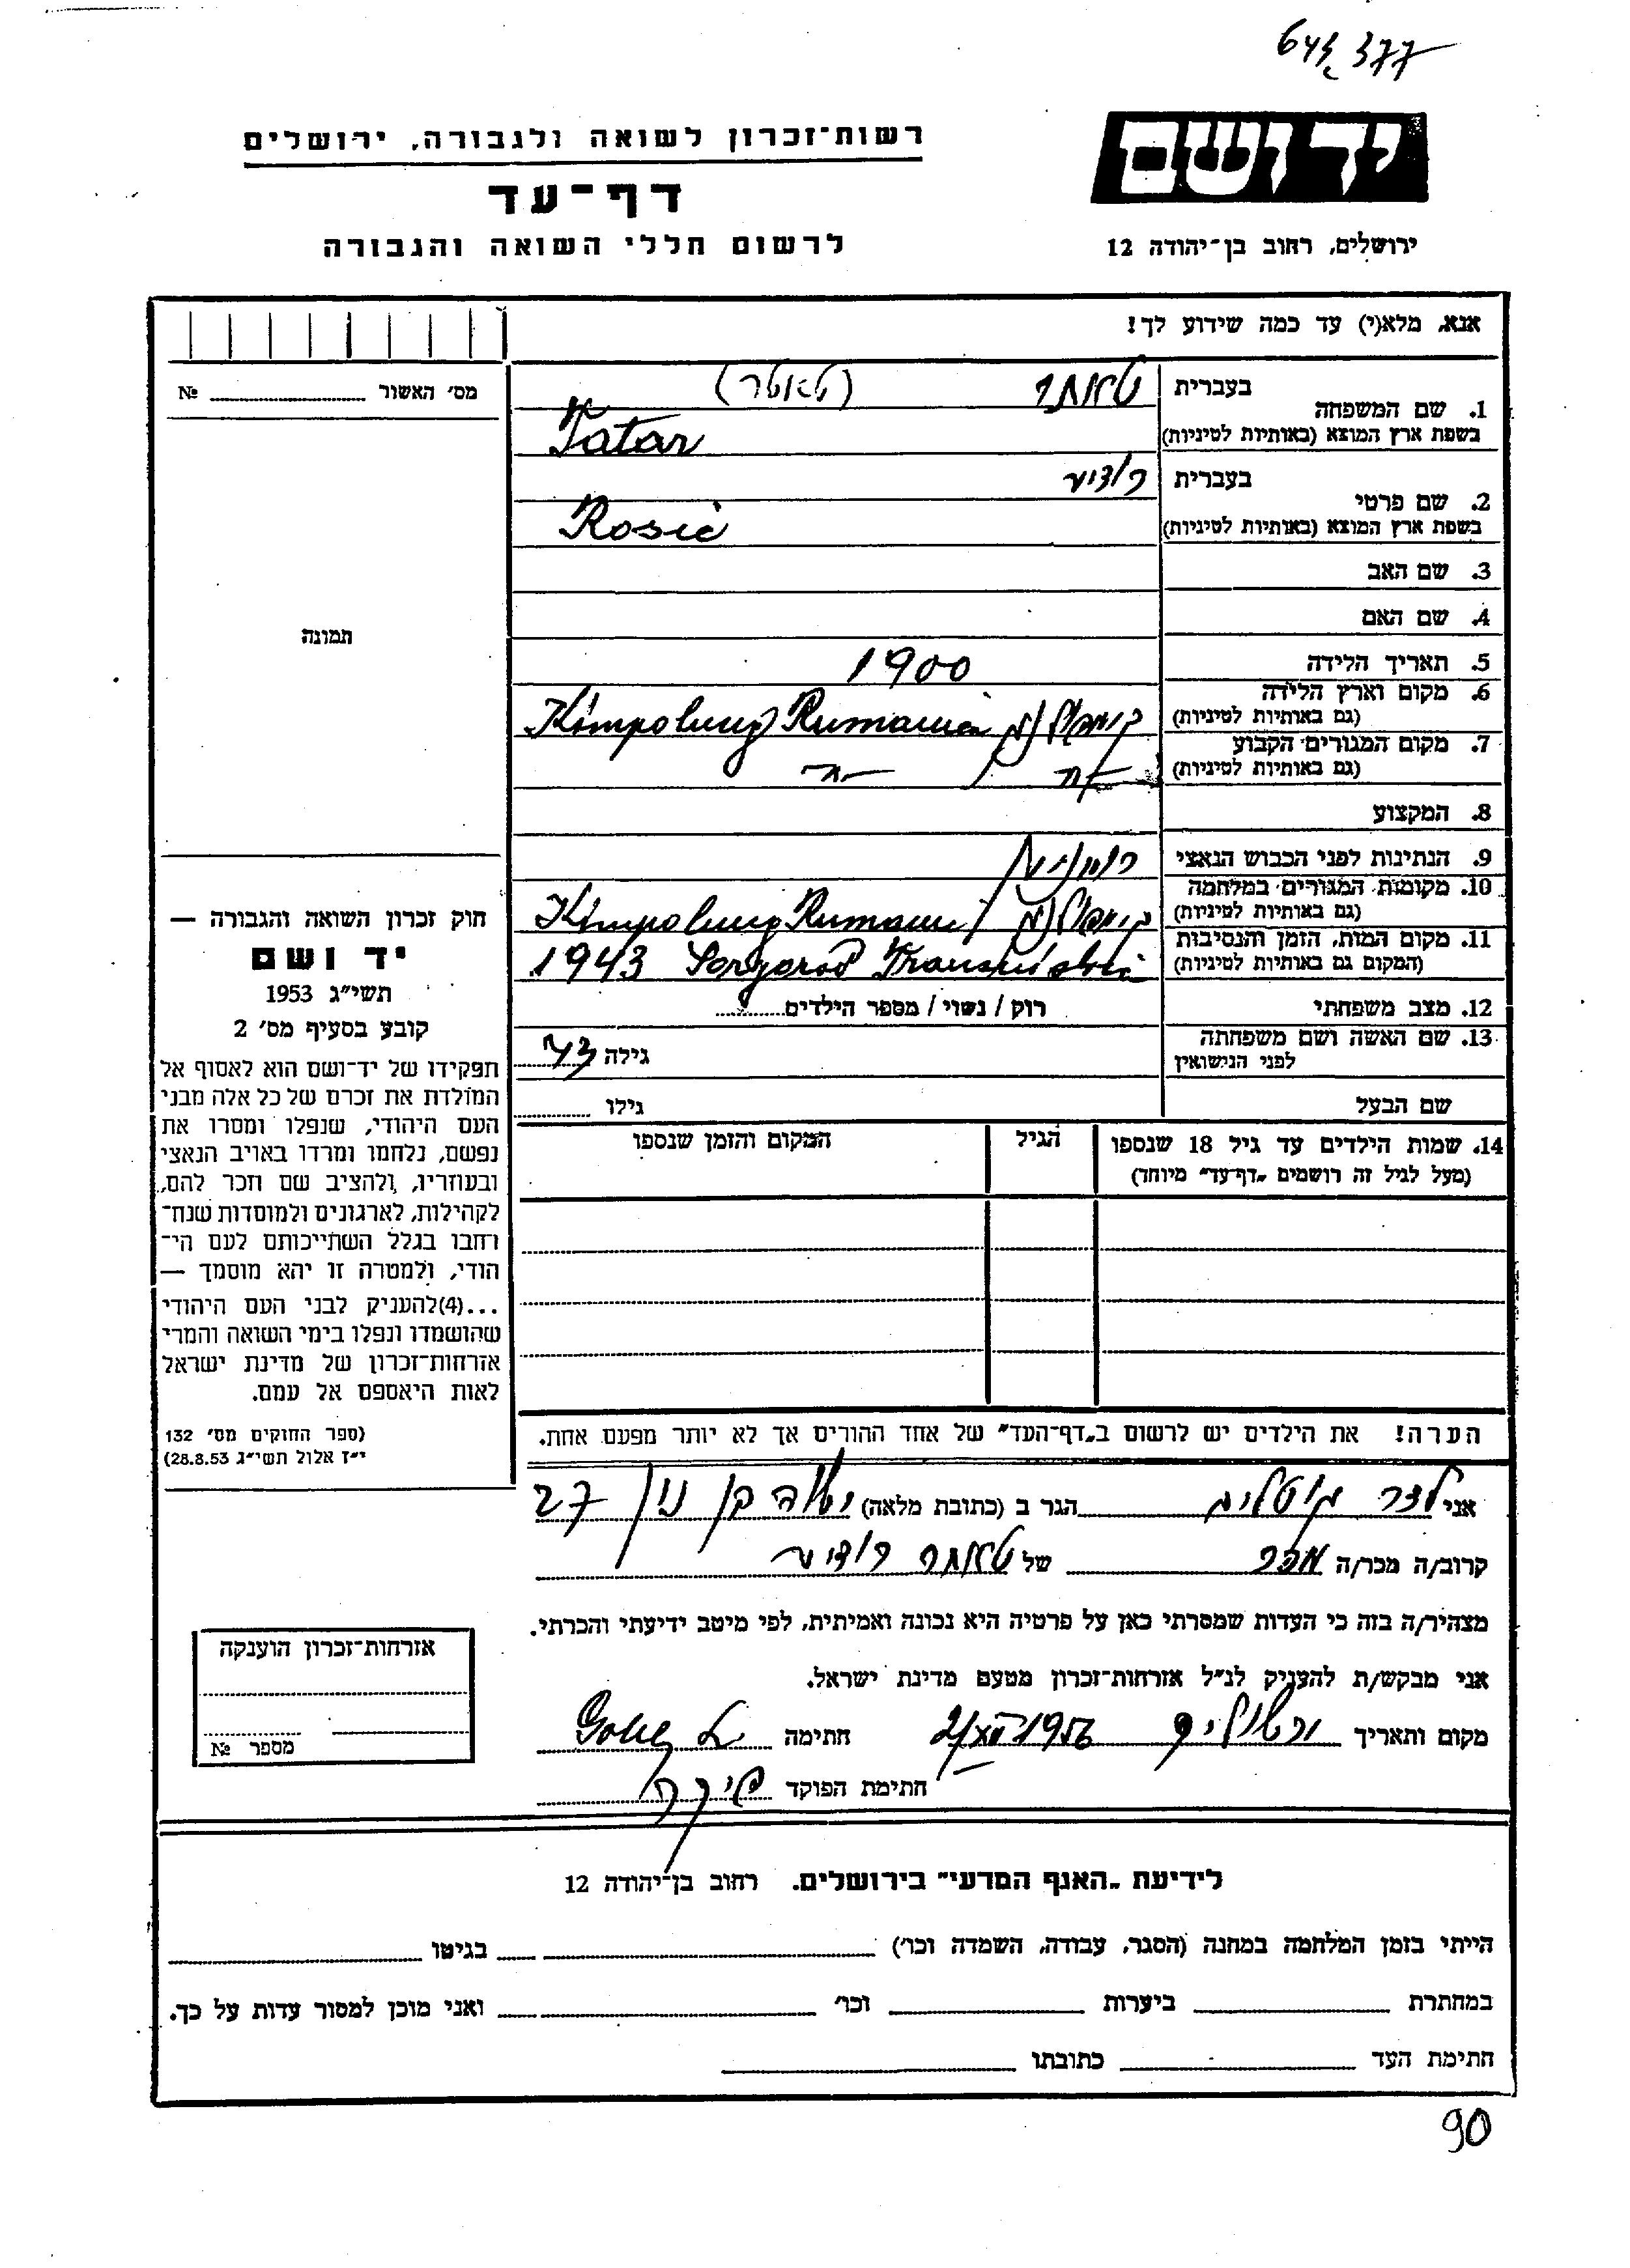 643377
רשות־זכרון לשואה ולגבורה, ירושלים
יד ושם
דף־עד
לרשום חללי השואה והגבורה
ירושלים, רחוב בן־יהודה 12
אנא, מלא(י) עד כמה שידוע לך!
מס׳ האשור № 
1. שם המשפחה
בעברית טאתר (טאטר)
בשפת ארץ המוצא (באותיות לטיניות) Tatar
2. שם פרטי
בעברית
בשפת ארץ המוצא (באותיות לטיניות) Rosie
3. שם האב
4. שם האם
תמונה
5. תאריך הלידה 1900
6. מקום וארץ הלידה
(גם באותיות לטיניות) קימפולונג Kimpolung Rumania
7. מקום המגורים הקבוע
(גם באותיות לטיניות)
8. המקצוע
9. הנתינות לפני הכבוש הנאצי רומנית
10. מקומות המגורים במלחמה
(גם באותיות לטיניות) קימפולונג Kimpolung
11. מקום המות, הזמן והנסיבות
(המקום גם באותיות לטיניות) 1943
12. מצב משפחתי רוק / נשוי / מספר הילדים
13. שם האשה ושם משפחתה
לפני הנישואין גילה 43
שם הבעל גילו
14. שמות הילדים עד גיל 18 שנספו הגיל המקום והזמן שנספו
(מעל לגיל זה רושמים „דף־עד" מיוחד)
חוק זכרון השואה והגבורה —
יד ושם
תשי״ג 1953
קובע בסעיף מס׳ 2
תפקידו של יד־ושם הוא לאסוף אל
המולדת את זכרם של כל אלה מבני
העם היהודי, שנפלו ומסרו את
נפשם, נלחמו ומרדו באויב הנאצי
ובעוזריו, ולהציב שם וזכר להם,
לקהילות, לארגונים ולמוסדות שנח־
רבו בגלל השתייכותם לעם הי־
הודי, ולמטרה זו יהא מוסמך —
...(4)להעניק לבני העם היהודי
שהושמדו ונפלו בימי השואה והמרי
אזרחות־זכרון של מדינת ישראל
לאות היאספם אל עמם.
(ספר החוקים מס׳ 132
י״ז אלול תשי״ג 28.8.53)
הערה! את הילדים יש לרשום ב„דף־העד" של אחד ההורים אך לא יותר מפעם אחת.
אני הגר ב (כתובת מלאה) בן נון 27
קרוב/ה מכר/ה מכר של טאתר
מצהיר/ה בזה כי העדות שמסרתי כאן על פרטיה היא נכונה ואמיתית, לפי מיטב ידיעתי והכרתי.
אני מבקש/ת להעניק לנ״ל אזרחות־זכרון מטעם מדינת ישראל.
מקום ותאריך חתימה
חתימת הפוקד
אזרחות־זכרון הוענקה
מספר №
לידיעת „האגף המדעי" בירושלים. רחוב בן־יהודה 12
הייתי בזמן המלחמה במחנה (הסגר, עבודה, השמדה וכו׳) בגיטו
במחתרת ביערות וכו׳ ואני מוכן למסור עדות על כך.
חתימת העד כתובתו
90